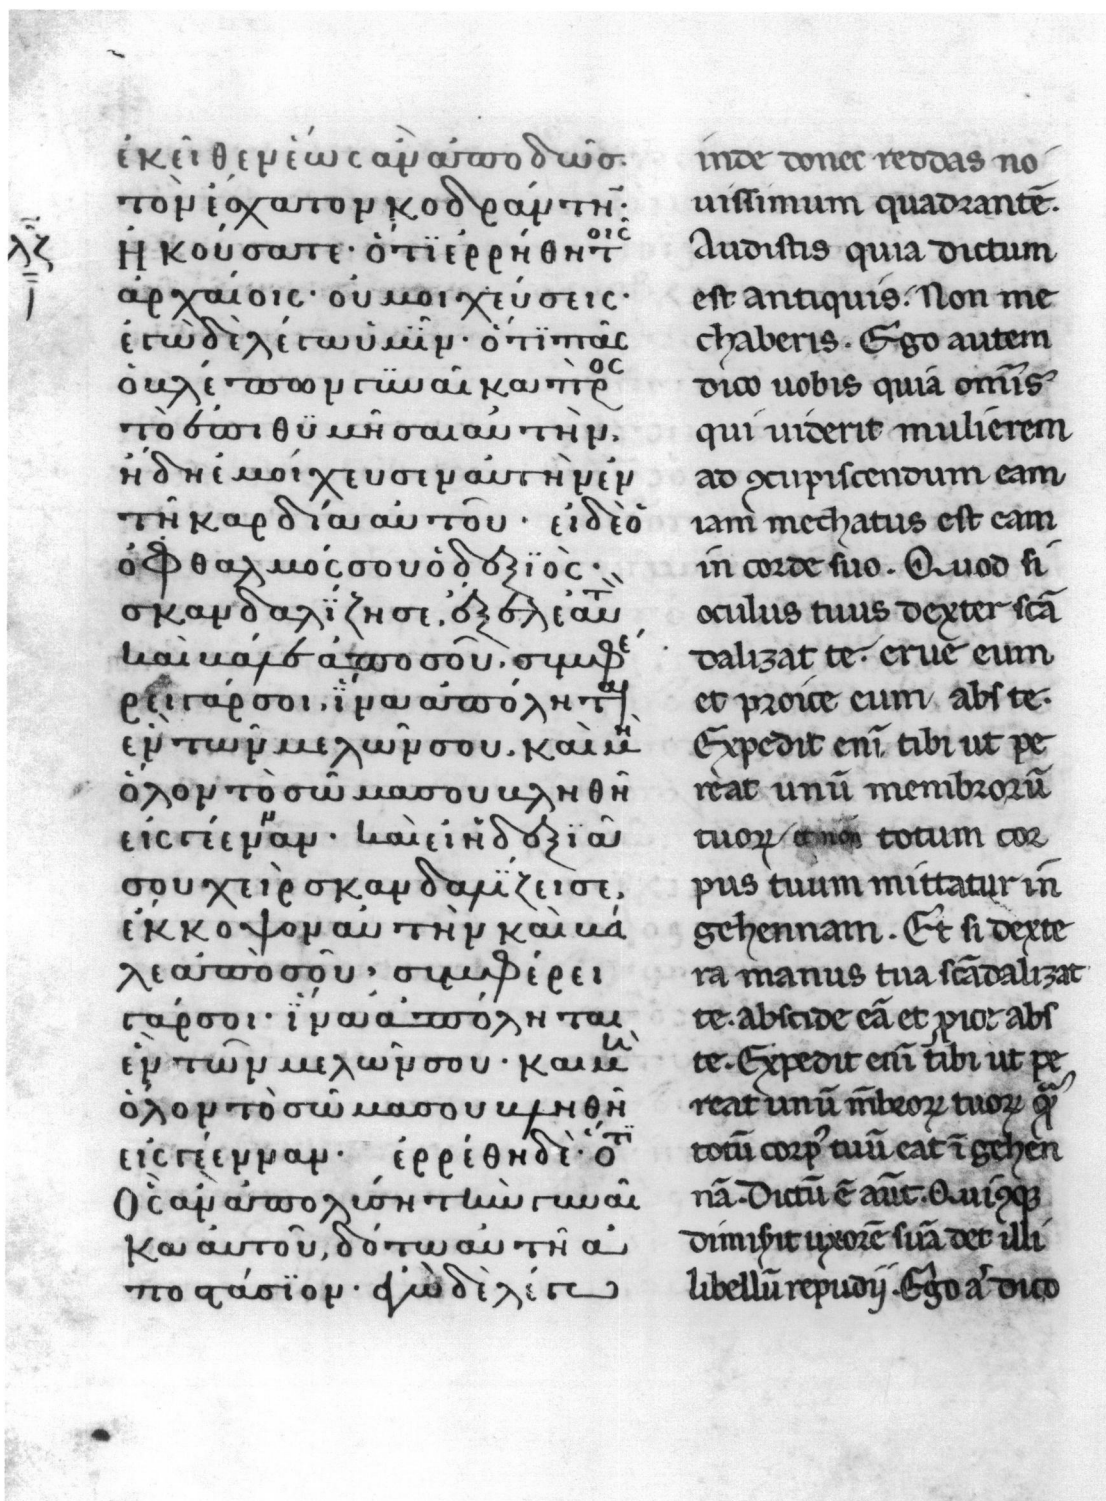 ἐκεῖθεν ἕως ἂν ἀποδῶσ
τὸν ἔσχατον κοδράντη·
λζ
Ἠκούσατε· ὅτι ἐρρήθη τοῖς
ἀρχαίοις· οὐ μοιχεύσεις·
ἐγὼ δὲ λέγω ὑμῖν· ὅτι πᾶς
ὁ βλέπων γυναῖκα πρὸς
τὸ ἐπιθυμῆσαι αὐτὴν,
ἤδη ἐμοίχευσεν αὐτὴν ἐν
τῆ καρδία αὐτοῦ· εἰ δὲ ὁ
ὀφθαλμός σου ὁ δεξιὸς·
σκανδαλίζη σε, ἔξελε αὐτὸν
καὶ βάλε ἀπὸ σοῦ· συμφέ
ρει γάρ σοι, ἵνα ἀπόληται
ἓν τῶν μελῶν σου, καὶ μὴ
ὅλον τὸ σῶμα σου βληθῆ
εἰς γέενναν· καὶ εἰ ἡ δεξιὰ
σου χεὶρ σκανδαλίζει σε,
ἔκκοψον αὐτὴν καὶ βά
λε ἀπὸ σοῦ, συμφέρει
γάρ σοι· ἵνα ἀπόληται
ἓν τῶν μελῶν σου· καὶ μὴ
ὅλον τὸ σῶμα σου βληθῆ
εἰς γέενναν· ἐρρέθη δὲ· ὅτι
Ὃς ἂν ἀπολύση τὴν γυναῖ
κα αὐτοῦ, δότω αὐτῆ ἀ
ποστάσιον· ἐγὼ δὲ λέγω
inde donec reddas no
uissimum quadrantē.
Audistis quia dictum
est antiquis. Non me
chaberis. Ego autem
dico uobis quia om̄is
qui uiderit mulierem
ad ꝯcupiscendum eam
iam mechatus est eam
in corde suo. Quod si
oculus tuus dexter scā
dalizat te. erue eum
et proice eum abs te.
Expedit enī tibi ut pe
reat unū membrorū
tuoꝝ et non totum cor
pus tuum mittatur in
gehennam. Et si dexte
ra manus tua scādalizat
te. abscide eā et proice abs
te. Expedit enī tibi ut pe
reat unū m̄broꝝ tuoꝝ qua
totū corpꝰ tuū eat ī gehen
nā. Dictū ē aūt. Quicūqꝫ
dimisit uxorē suā det illi
libellū repudij. Ego a dico